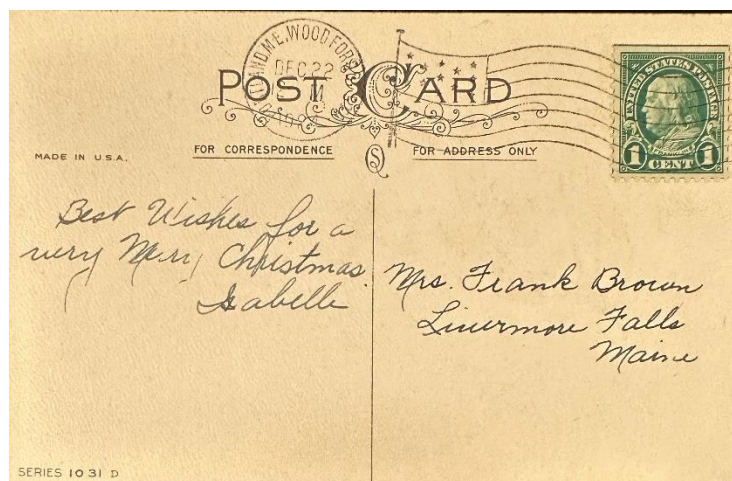 AND ME. WOODFOR
DEC 22
POST CARD
UNITED STATES POSTAGE
FRANKLIN
1 CENT 1
MADE IN U.S.A.
FOR CORRESPONDENCE
FOR ADDRESS ONLY
Best Wishes for a
very Merry Christmas
Isabelle
Mrs. Frank Brown
Livermore Falls
Maine
SERIES 1031 D